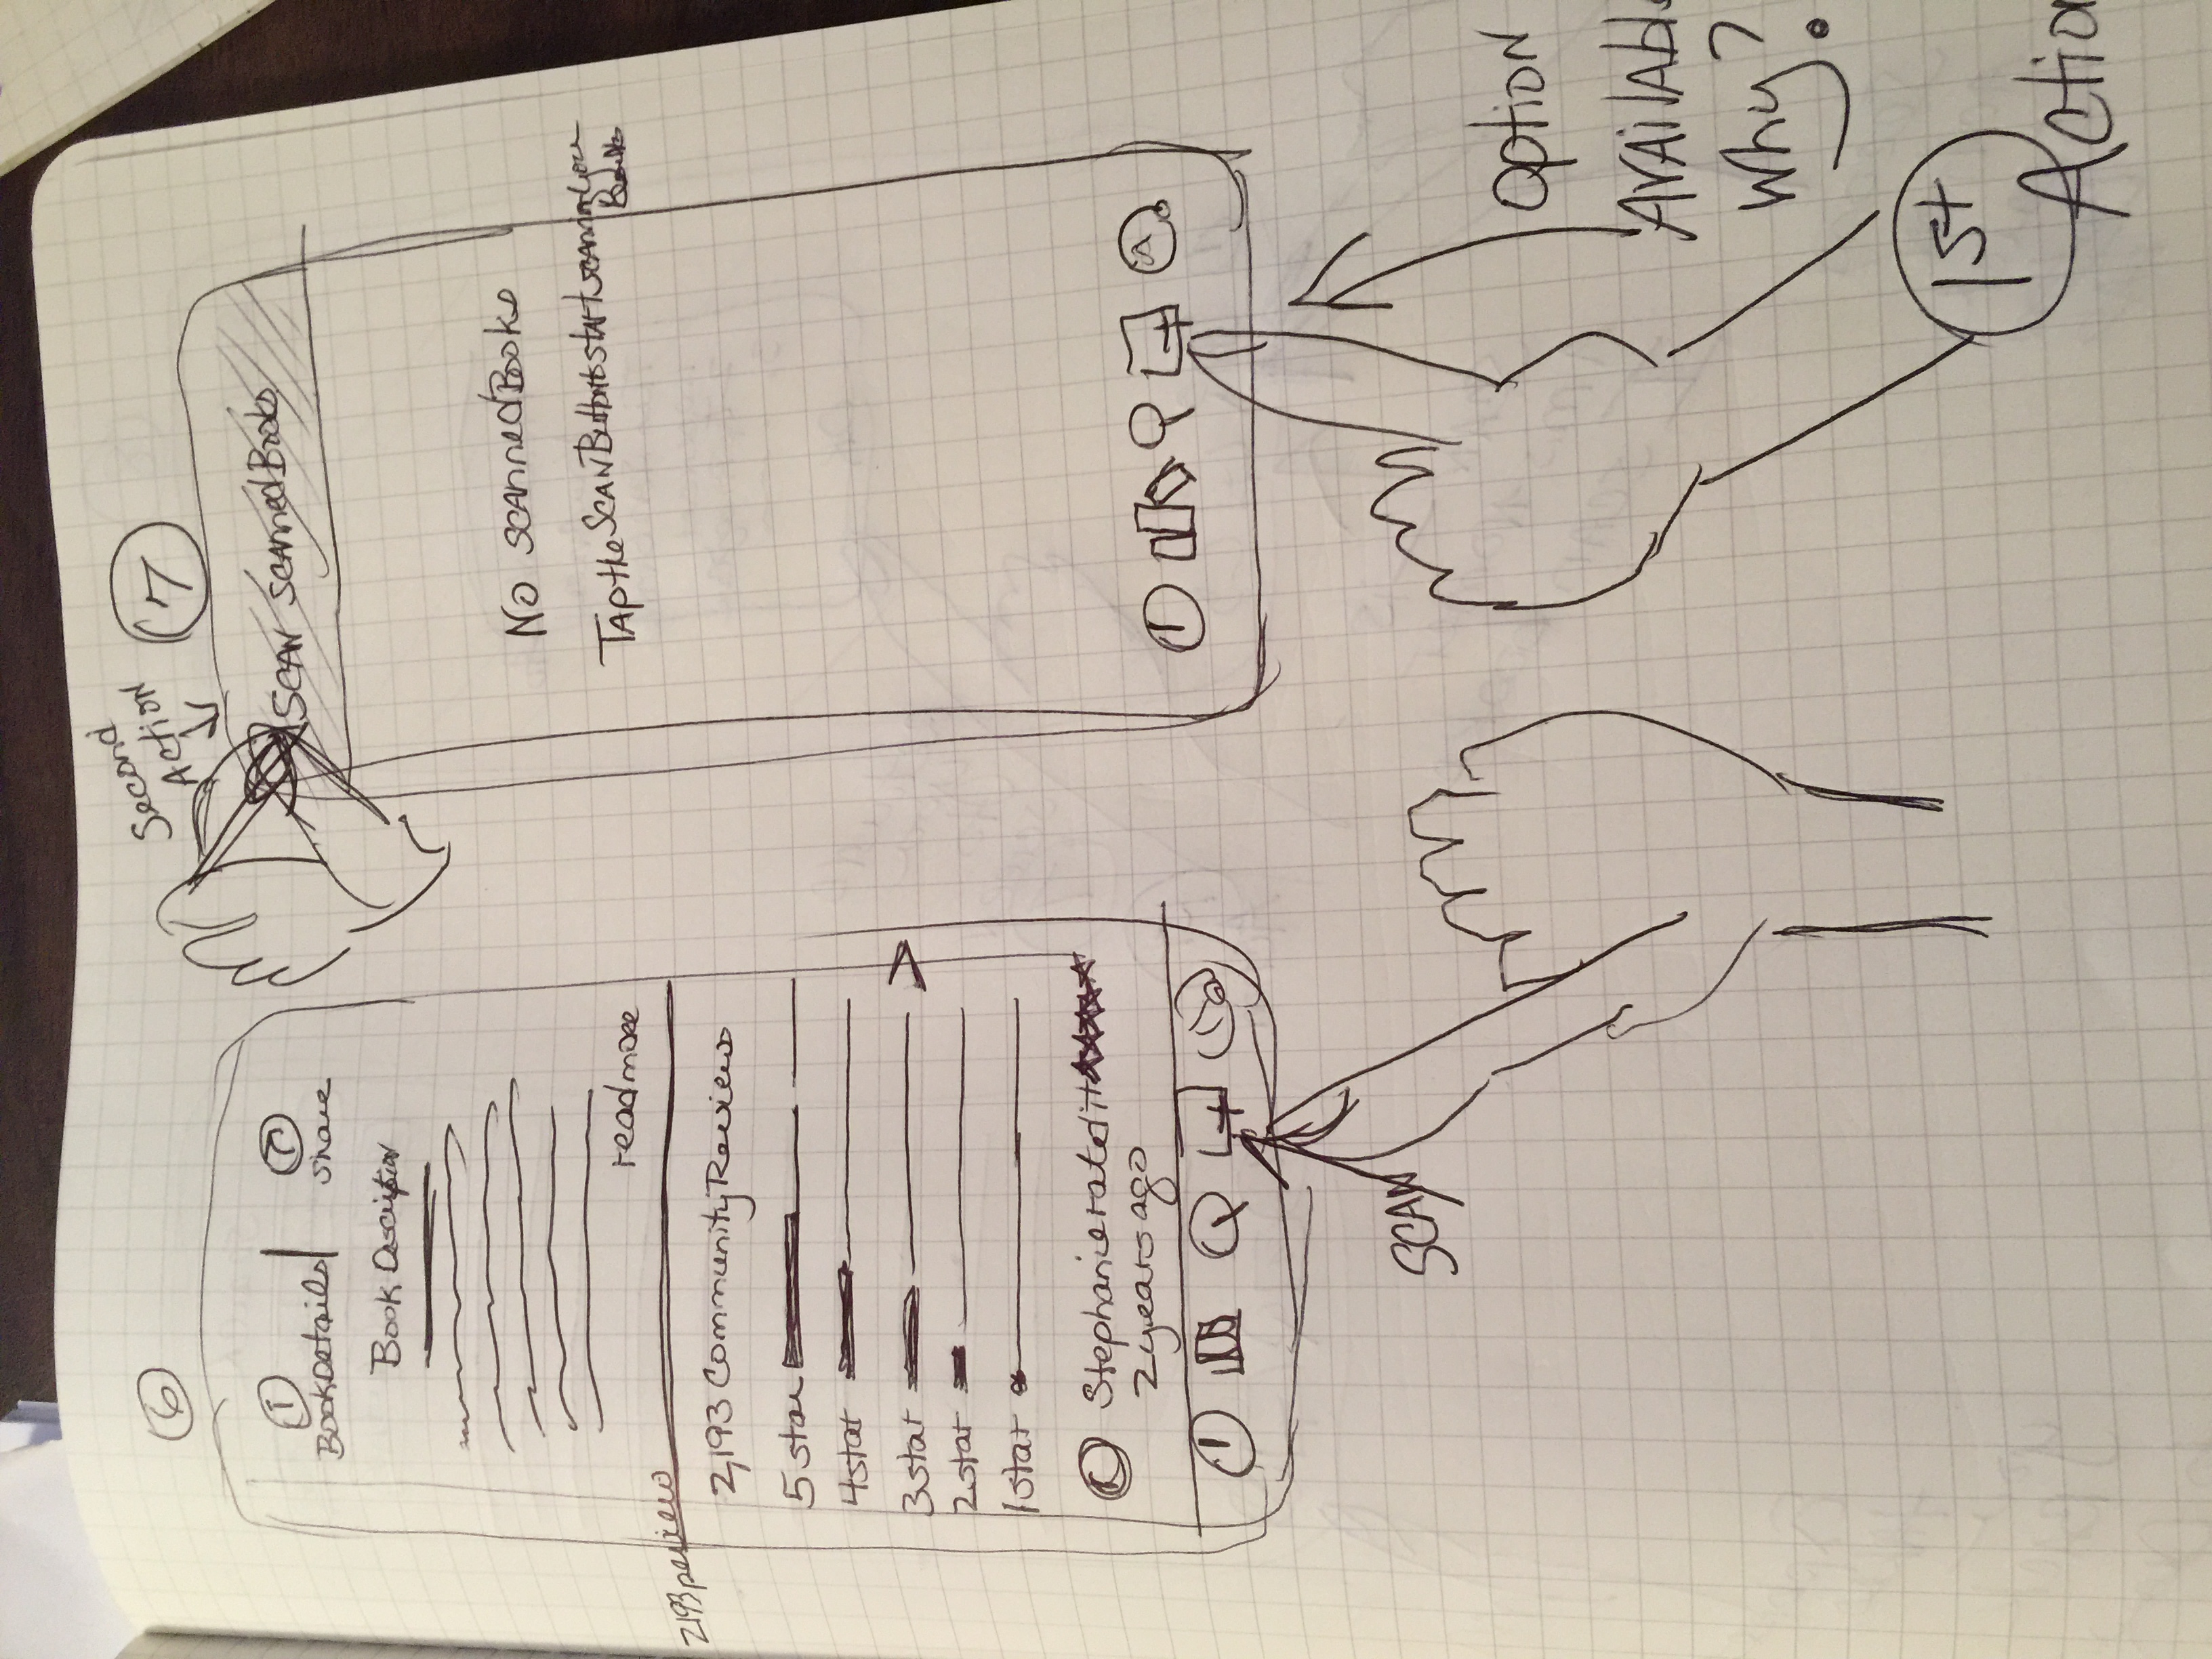 6
Book Details
Share
Book Description
read more
2193 review
2,193 Community Reviews
5 star
4 star
3 star
2 star
1 star
Stephanie rated it
2 years ago
SCAN
Second
Action
7
SCAN Scanned Books
No scanned Books
Tap the SCAN Button to start scanning your
Books
Option
Available
Why?
1st
Action